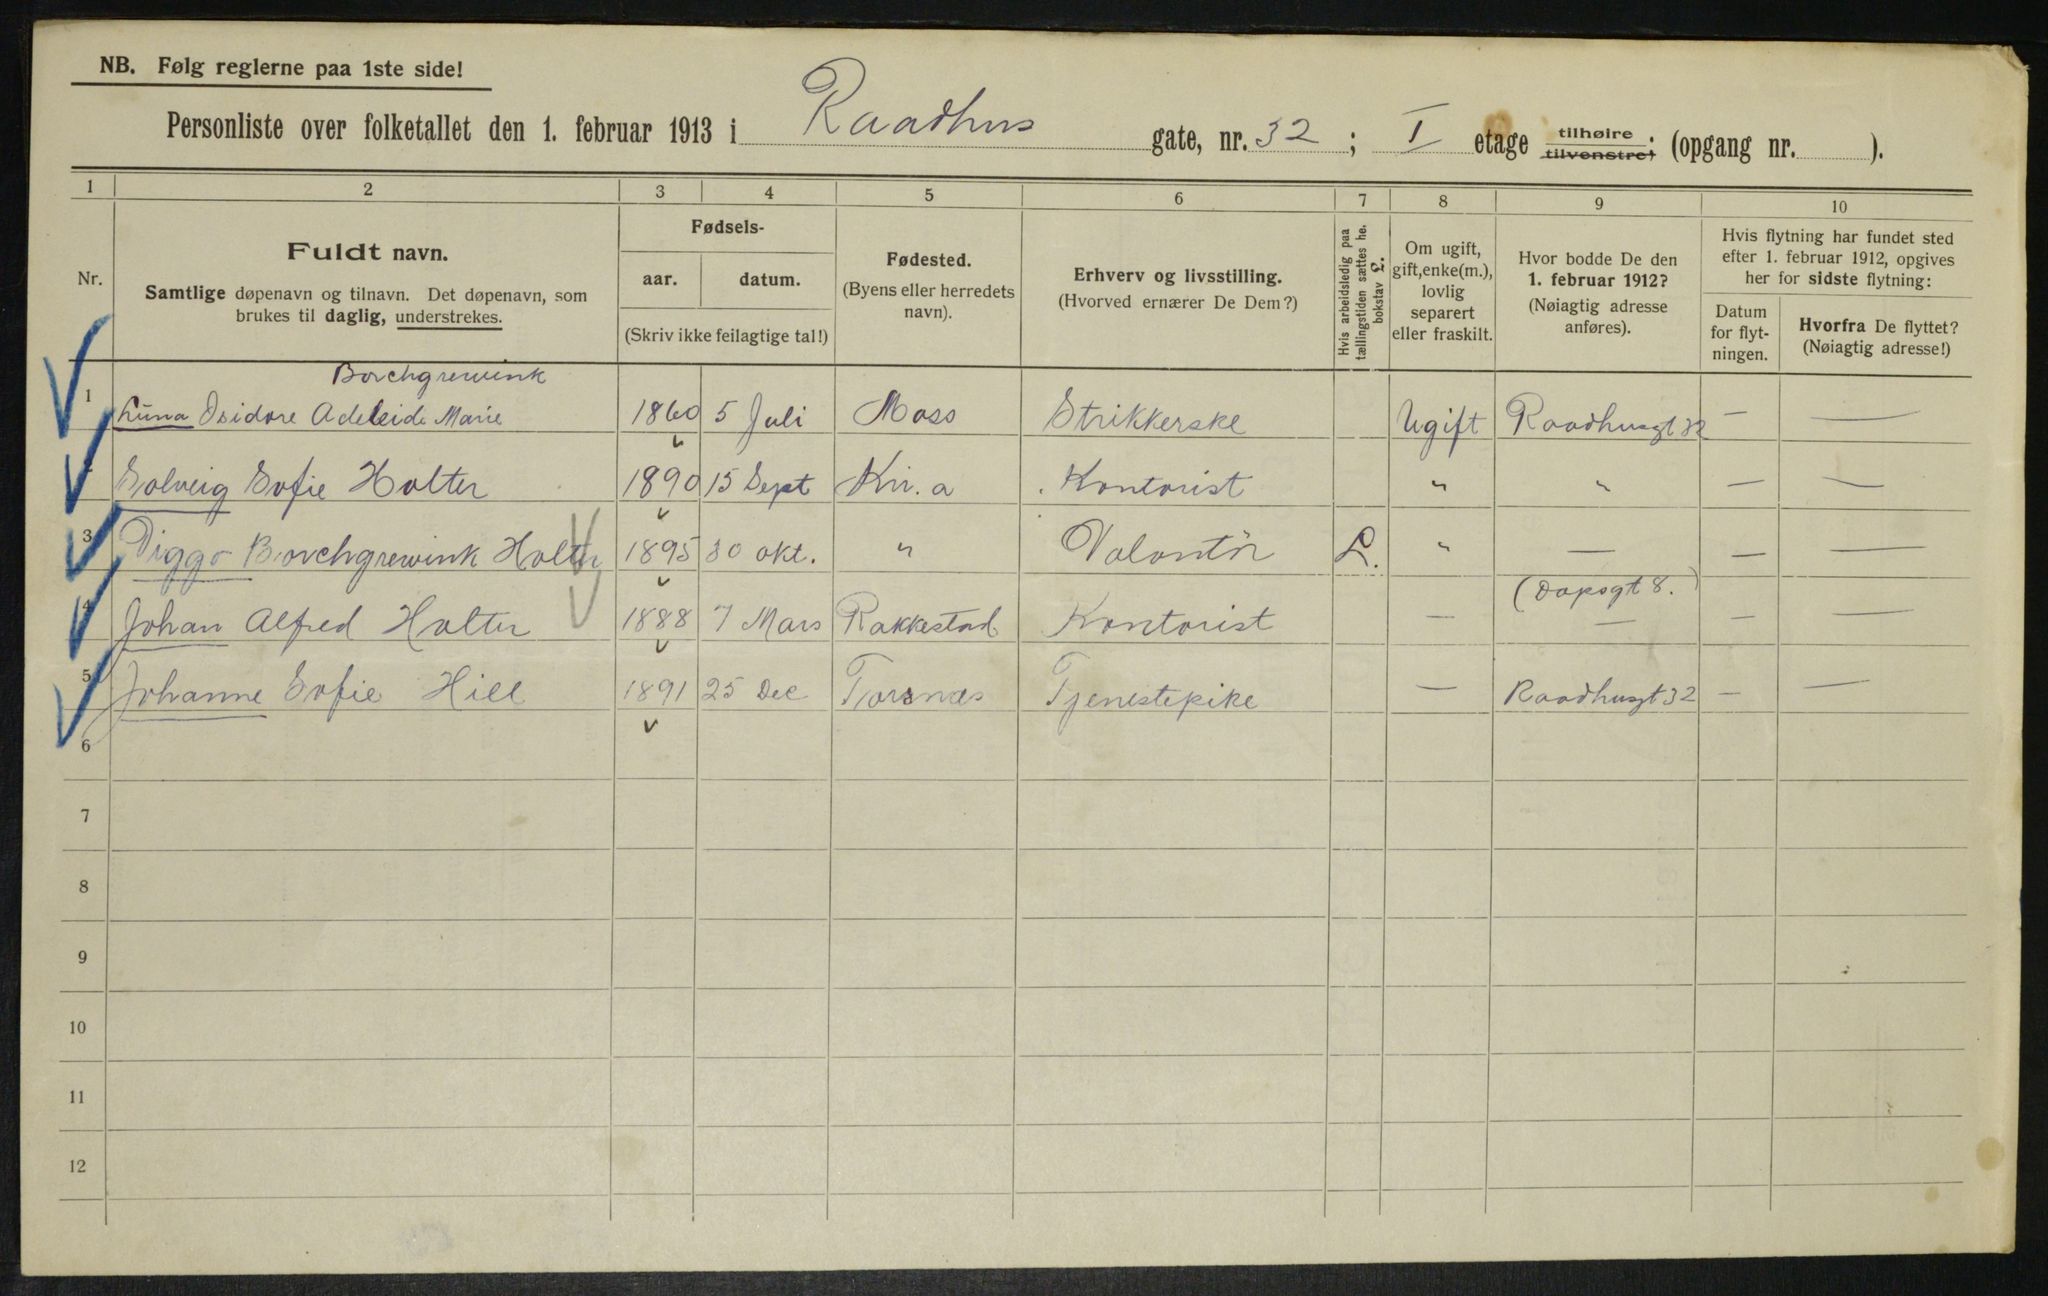 NB. Følg reglerne paa 1ste side!
Personliste over folketallet den 1. februar 1913 i Raadhus gate, nr. 32 ; I etage tilhøire tilvenstre; (opgang nr. ).
1 2 3 4 5 6 7 8 9 10
Nr.
Fuldt navn.
Samtlige døpenavn og tilnavn. Det døpenavn, som
brukes til daglig, understrekes.
Fødsels-
aar. datum.
(Skriv ikke feilagtige tal!)
Fødested.
(Byens eller herredets
navn).
Erhverv og livsstilling.
(Hvorved ernærer De Dem?)
Hvis arbeidsledig paa
tællingstiden sættes he.
bokstav L.
Om ugift,
gift, enke(m.),
lovlig
separert
eller fraskilt.
Hvor bodde De den
1. februar 1912?
(Nøiagtig adresse
anføres).
Hvis flytning har fundet sted
efter 1. februar 1912, opgives
her for sidste flytning:
Datum
for flyt-
ningen.
Hvorfra De flyttet?
(Nøiagtig adresse!)
Borchgrewink
1 Luna Isidore Adeleide Marie 1860 5 Juli Moss Strikkerske Ugift Raadhusgt 32 — —
2 Solveig Sofie Holter 1890 15 Sept Kr.a Kontorist " " — —
3 Viggo Borchgrewink Holter 1895 30 okt. " Volontör L. " — — —
(Dopsgt 8.)
4 Johan Alfred Holter 1888 7 Mars Rakkestad Kontorist — — — —
5 Johanne Sofie Hill 1891 25 Dec Torsnæs Tjenestepike — Raadhusgt 32 — —
6
7
8
9
10
11
12